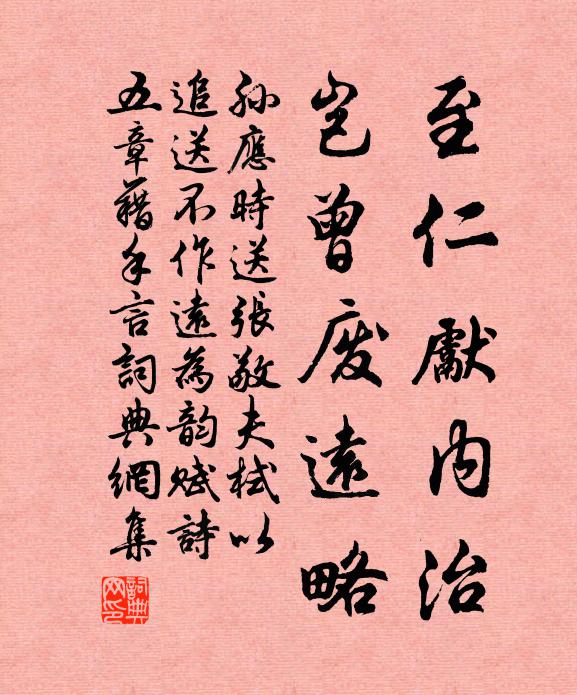 至仁獻内治
豈曾廢遠略
孫應時送張敬夫栻以
追送不作遠為韵賦詩
五章藉手言詞典網集
詞典网印